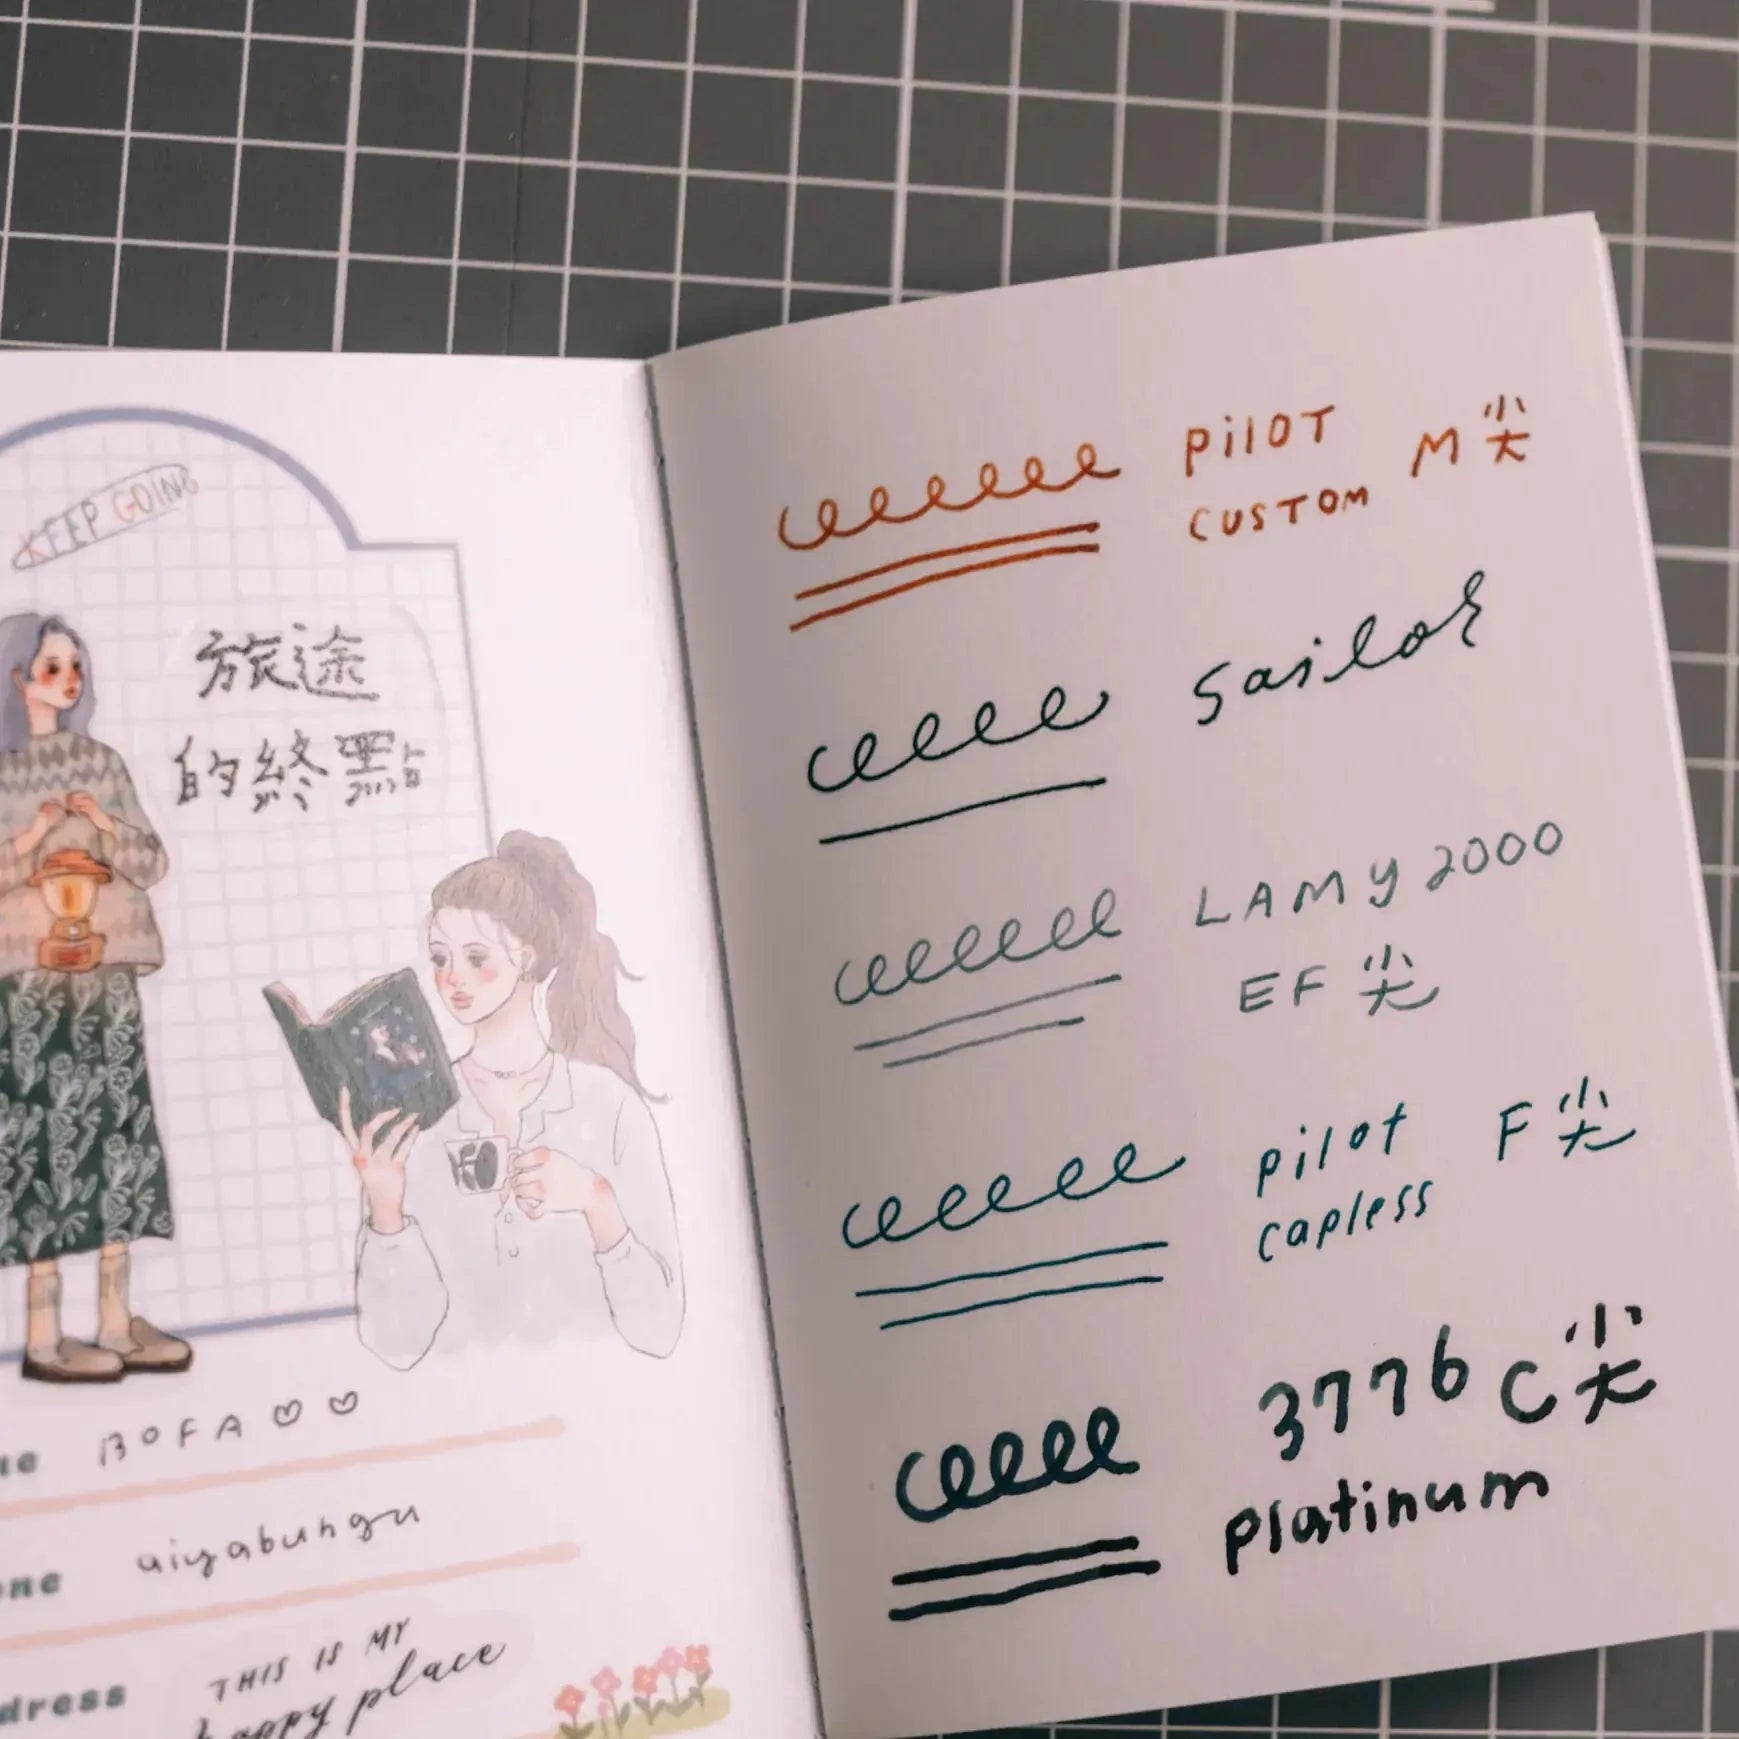 KEEP GOING
旅途
的終點
BOFA ♡ ♡
aiyabungu
THIS IS MY
happy place
dress
PilOT
CUSTOM M尖
sailor
LAMY 2000
EF尖
pilot F尖
capless
3776 C尖
platinum